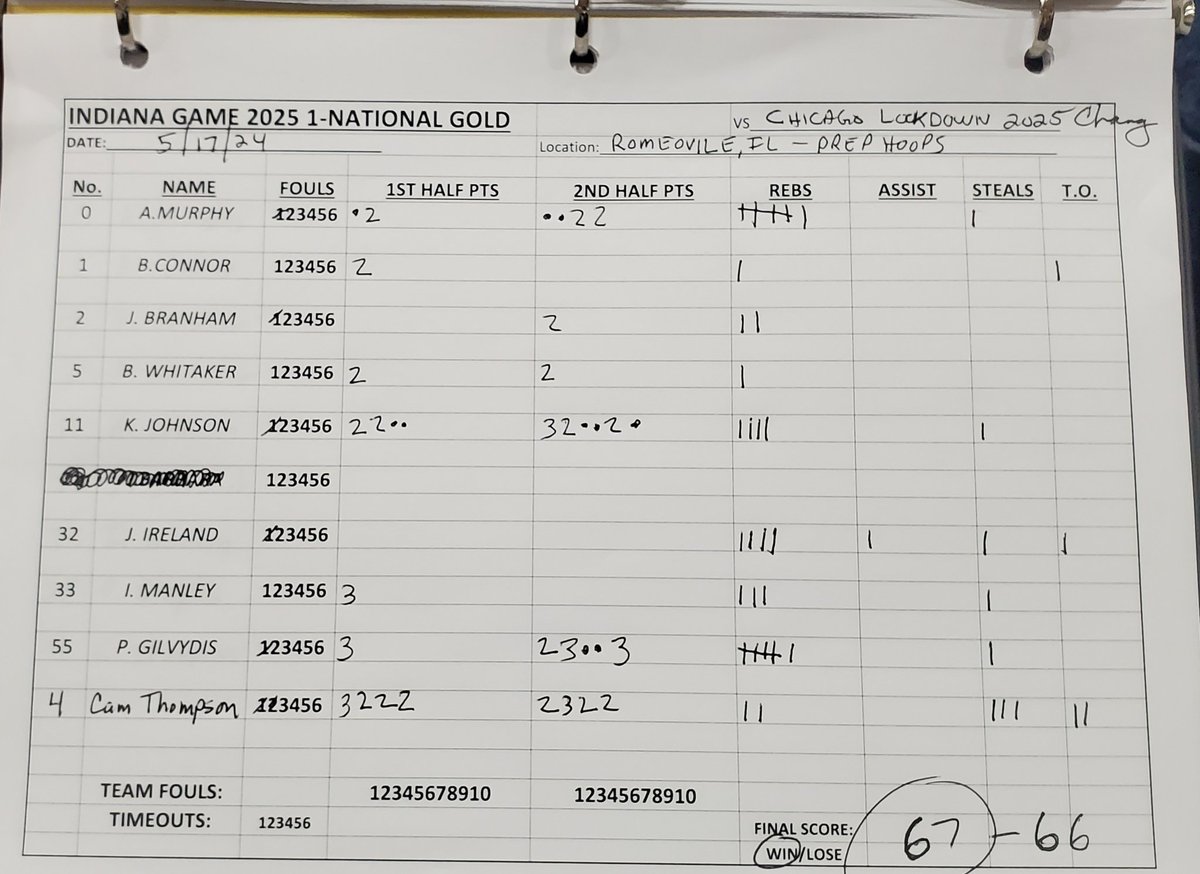 INDIANA GAME 2025 1-NATIONAL GOLD VS CHICAGO LOCKDOWN 2025
DATE: 5/17/24 Location: ROMEOVILE, IL - PREP HOOPS
No. NAME FOULS 1ST HALF PTS 2ND HALF PTS REBS ASSIST STEALS T.O.
0 A.MURPHY 123456 •2 ••22 |||| | |
1 B.CONNOR 123456 2 | |
2 J. BRANHAM 123456 2 ||
5 B. WHITAKER 123456 2 2 |
11 K. JOHNSON 123456 22•• 32••2• |||| |
123456
32 J. IRELAND 123456 |||| | | |
33 I. MANLEY 123456 3 ||| |
55 P. GILVYDIS 123456 3 23••3 |||| | |
4 Cam Thompson 123456 3222 2322 || ||| ||
TEAM FOULS: 12345678910 12345678910
TIMEOUTS: 123456
FINAL SCORE: 67 - 66
WIN/LOSE